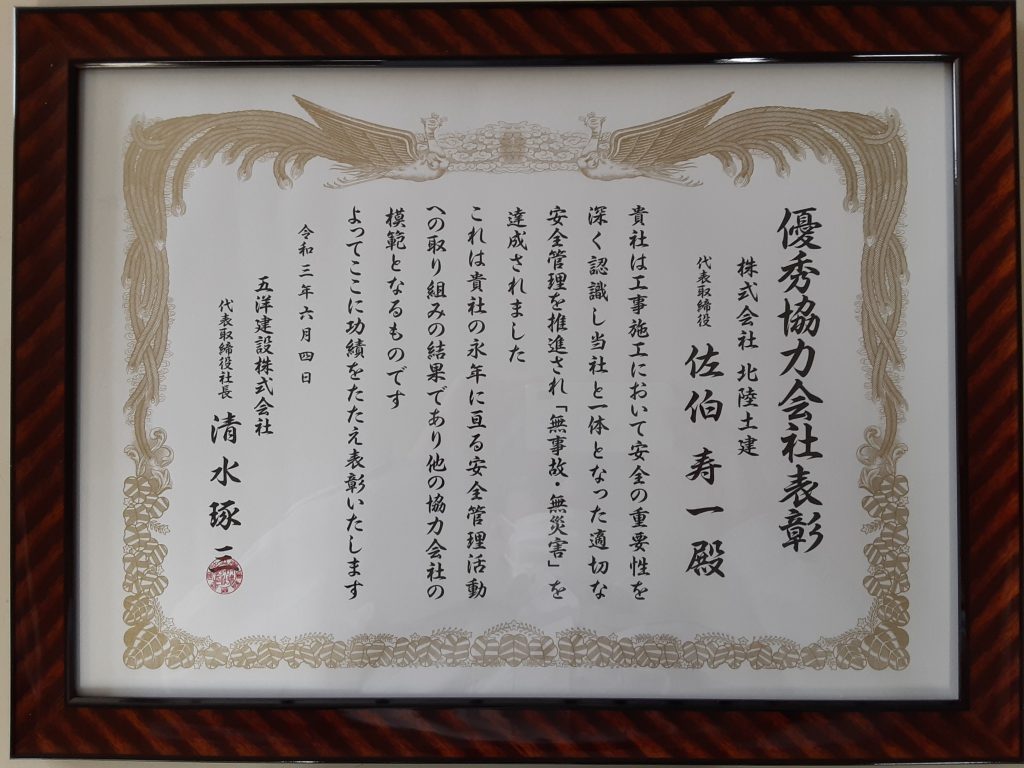 優秀協力会社表彰
株式会社 北陸土建
代表取締役 佐伯寿一殿
貴社は工事施工において安全の重要性を
深く認識し当社と一体となった適切な
安全管理を推進され「無事故・無災害」を
達成されました
これは貴社の永年に亘る安全管理活動
への取り組みの結果であり他の協力会社の
模範となるものです
よってここに功績をたたえ表彰いたします
令和三年六月四日
五洋建設株式会社
代表取締役社長 清水琢三